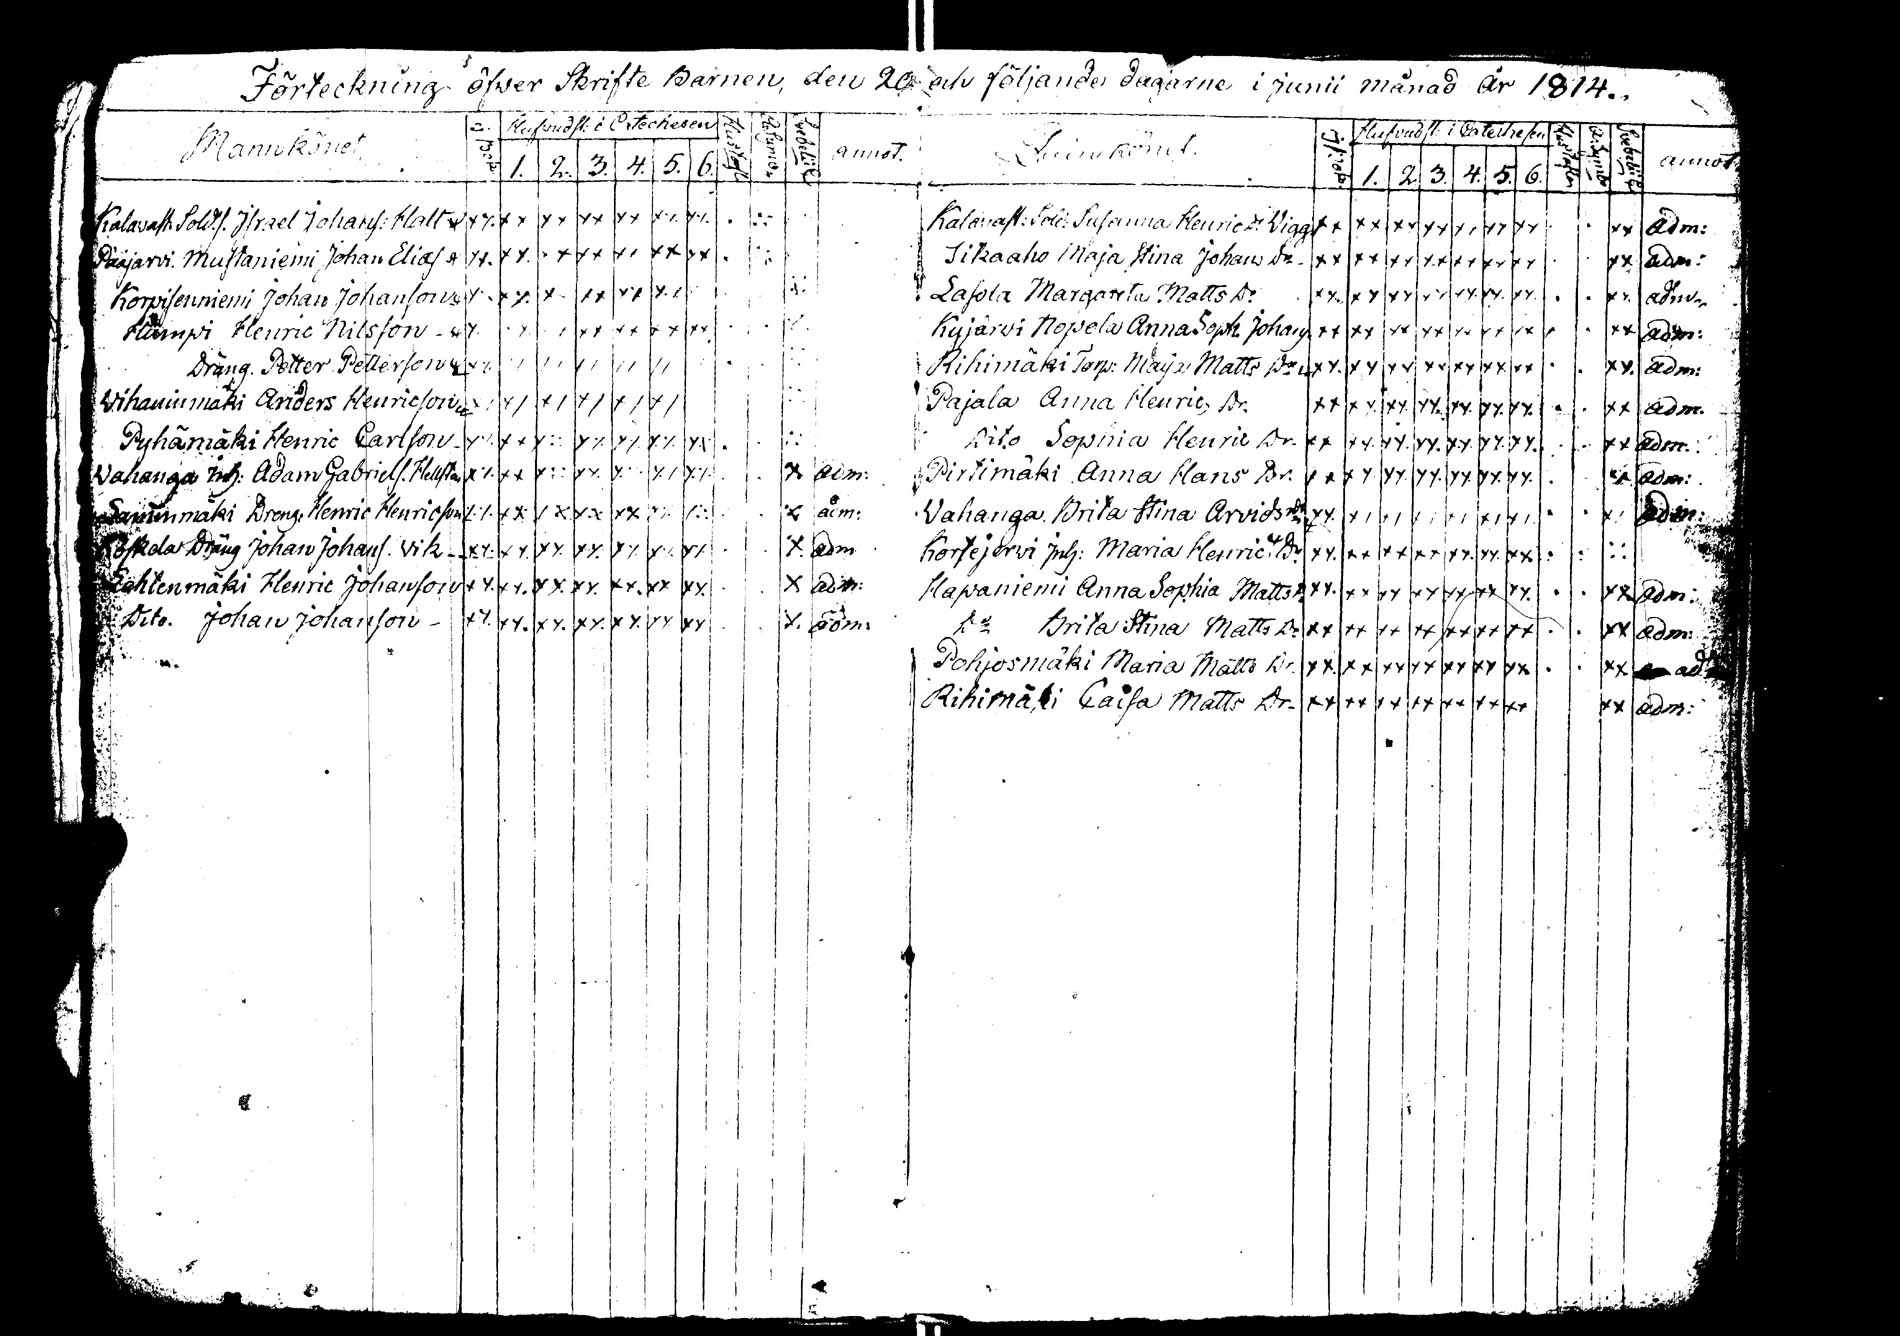 Förteckning öfwer Skrifte Barnen, den 20 och följande dagarne i Junii månad År 1814.
Mannkönet. i bok Hufvudst: i Catechesen Hustafl annot.
1. 2. 3. 4. 5. 6.
Kalavast: Sold:s. Israel Johans: Halt xx xx xx xx xx xx xx
Pääjärvi. Mustaniemi Johan Elias xx xx xx xx xx xx
Korpisenniemi Johan Johanson
Humpi Henric Nilsson
Dräng Petter Petterson
Vihaninmäki Anders Henricson
Pyhämäki Henric Carlson
Vahanga Inh: Adam Gabriels. x adm:
mäki Dreng: Henric Henricson x adm:
Koskela Dräng Johan Johans. Vik x adm
Lehtenmäki Henric Johanson xx xx xx xx xx xx xx x adm:
Dito. Johan Johanson xx xx xx xx xx xx xx x adm:
Quinnkönet. i bok Hufvudst: i Catechesen Hustaflan annot.
1. 2. 3. 4. 5. 6.
Kalavast: Sold: Susanna Henric Dr Vigg xx xx xx xx xx xx xx xx adm:
Sikaaho Maja Stina Johans Dr xx xx xx xx xx xx xx xx adm:
Lasola Margareta Matts Dr xx xx xx xx xx xx xx xx adm
Kyjärvi Nopola Anna Soph. Johans xx xx xx xx xx xx xx xx adm:
Rihimäki Torp: Maja Matts Dr xx xx xx xx xx xx xx xx adm:
Pajala Anna Henric Dr. xx xx xx xx xx xx xx xx adm.
Dito Sophia Henric Dr. xx xx xx xx xx xx xx xx adm:
Pirttimäki Anna Hans Dr. xx xx xx xx xx xx xx xx adm:
Vahanga. Brita Stina Arvids Dr adm:
Kortejervi Inh: Maria Henric Dr xx xx xx xx xx xx xx
Hapaniemi Anna Sophia Matts xx xx xx xx xx xx xx xx adm:
Do Brita Stina Matts Dr xx xx xx xx xx xx xx xx adm:
Pohjosmäki Maria Matts Dr. xx xx xx xx xx xx xx xx ad
Rihimäki Caisa Matts Dr. xx xx xx xx xx xx xx xx adm: